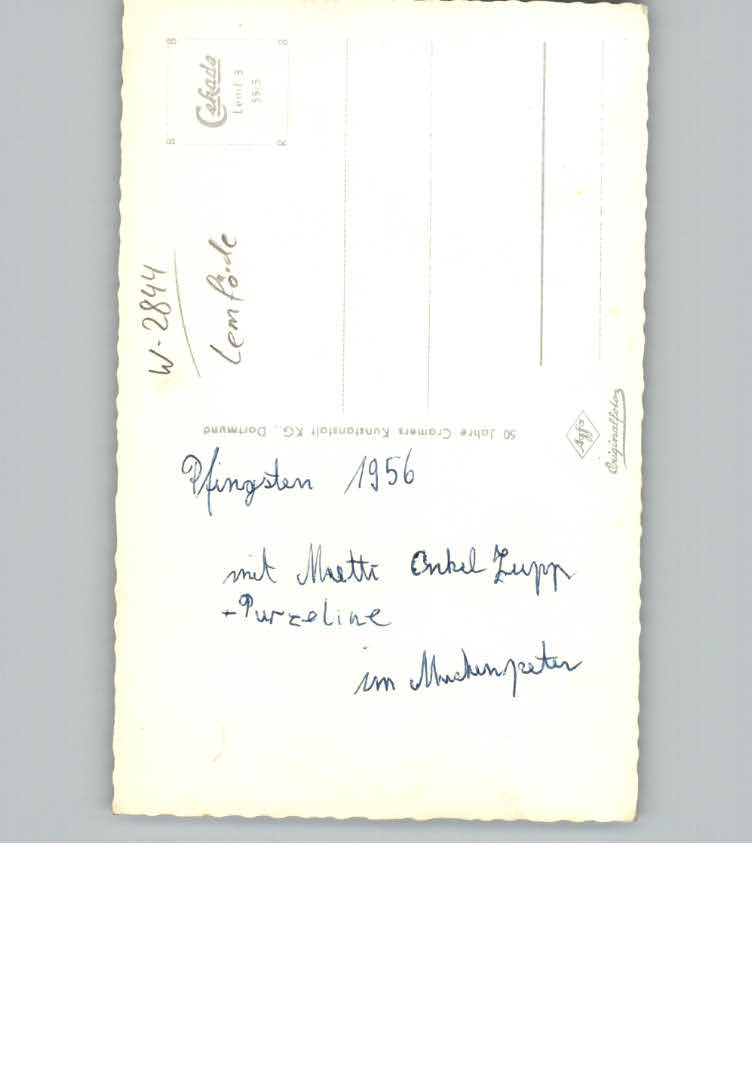 B
B
Cekade
Lemf. 3
55/5
B
R
W-2844
Lemförde
50 Jahre Cramers Kunstanstalt KG., Dortmund
Agfa
Originalfoto
Pfingsten 1956
mit Mutti Onkel Jupp
+ Purzeline
im Muckenpeter